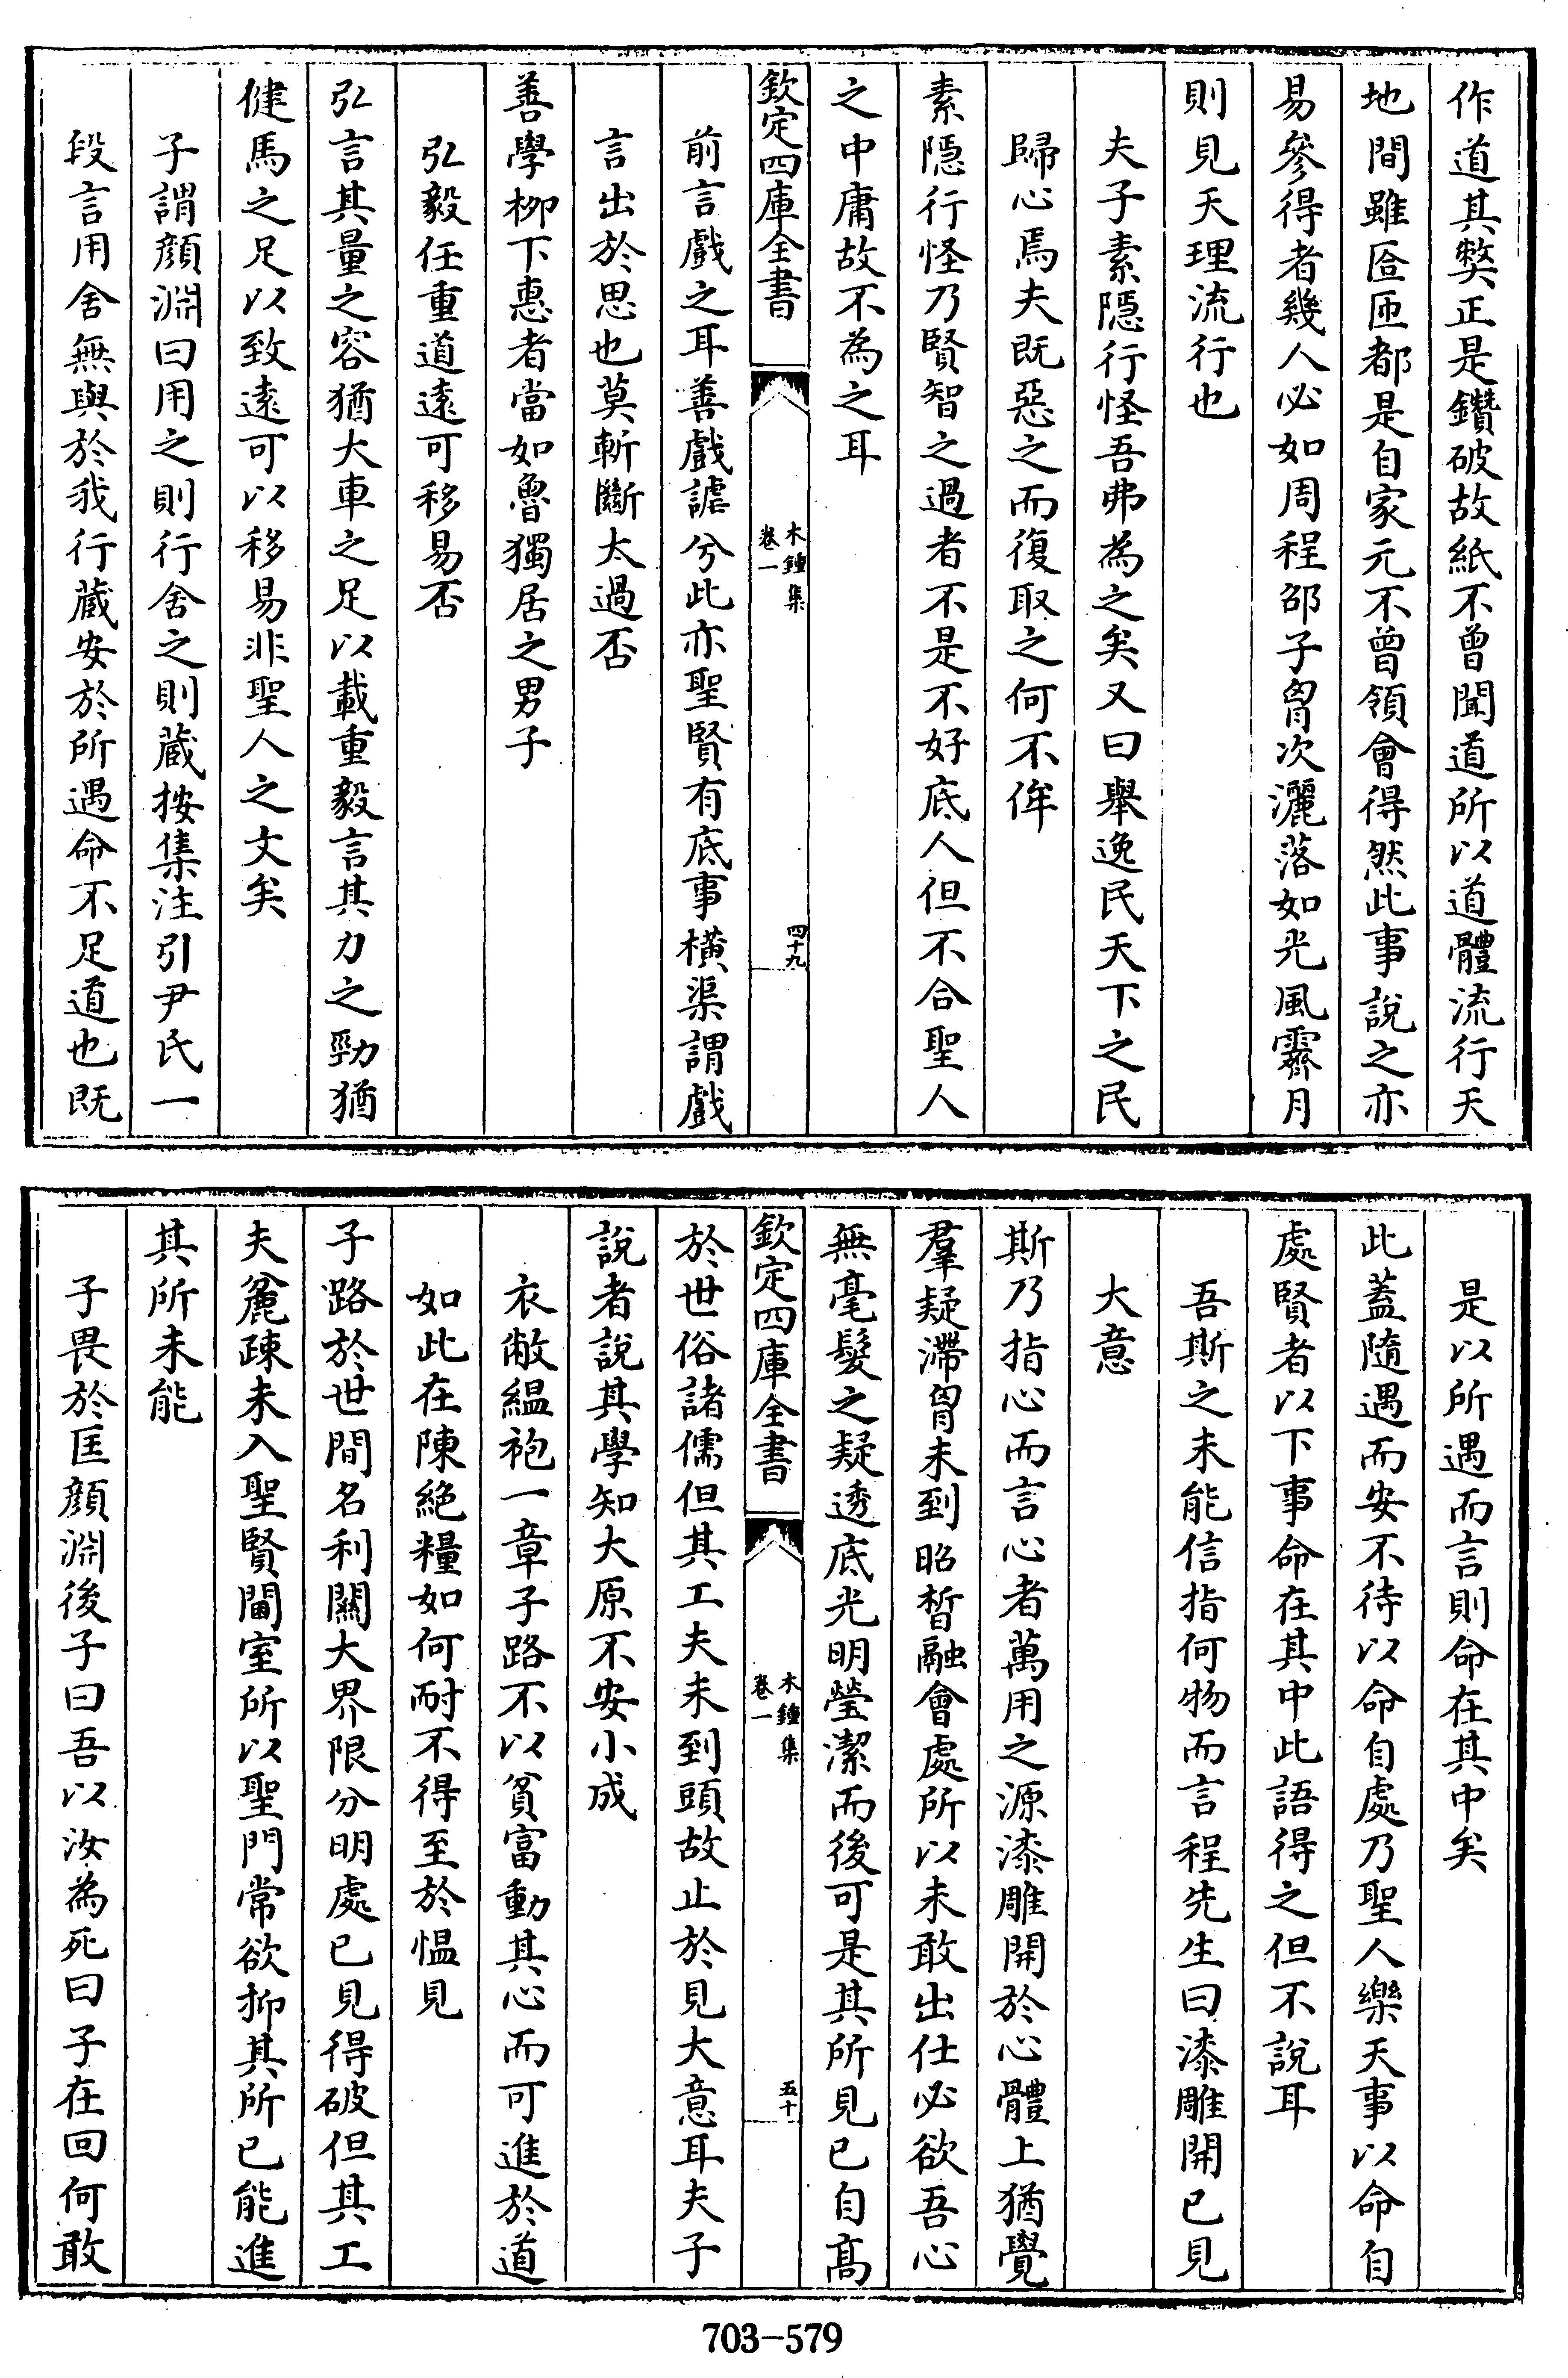 作道其弊正是鑽破故紙不曾聞道所以道體流行天
地間雖匝匝都是自家元不曾領會得然此事說之亦
易參得者幾人必如周程邵子胷次灑落如光風霽月
則見天理流行也
夫子素隱行怪吾弗為之矣又曰舉逸民天下之民
歸心焉夫既惡之而復取之何不侔
素隱行怪乃賢智之過者不是不好底人但不合聖人
之中庸故不為之耳
欽定四庫全書
木鐘集
卷一
四十九
前言戲之耳善戲謔兮此亦聖賢有底事橫渠謂戲
言出於思也莫斬斷太過否
善學柳下惠者當如魯獨居之男子
弘毅任重道遠可移易否
弘言其量之容猶大車之足以載重毅言其力之勁猶
健馬之足以致遠可以移易非聖人之文矣
子謂顏淵曰用之則行舍之則藏按集注引尹氏一
段言用舍無與於我行藏安於所遇命不足道也既
是以所遇而言則命在其中矣
此蓋隨遇而安不待以命自處乃聖人樂天事以命自
處賢者以下事命在其中此語得之但不說耳
吾斯之未能信指何物而言程先生曰漆雕開已見
大意
斯乃指心而言心者萬用之源漆雕開於心體上猶覺
羣疑滯胷未到昭晢融會處所以未敢出仕必欲吾心
無毫髮之疑透底光明瑩潔而後可是其所見已自高
欽定四庫全書
木鐘集
卷一
五十
於世俗諸儒但其工夫未到頭故止於見大意耳夫子
說者說其學知大原不安小成
衣敝縕袍一章子路不以貧富動其心而可進於道
如此在陳絕糧如何耐不得至於愠見
子路於世間名利關大界限分明處已見得破但其工
夫麄疎未入聖賢閫室所以聖門常欲抑其所已能進
其所未能
子畏於匡顏淵後子曰吾以汝為死曰子在回何敢
703-579